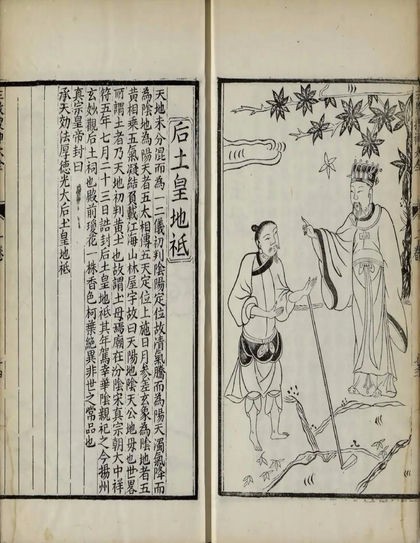 后土皇地祇
天地未分混而為一二儀初判陰陽定位故清氣騰而為陽天濁氣降而
為陰地為陽天者五太相傳五天定位上施日月參差玄象為陰地者五
黄相乘五氣凝結負載江海山林屋宇故曰天陽地陰天公地母也世畧
所謂土者乃天地初判黄土也故謂土母焉廟在汾陰宋真宗朝大中祥
符五年七月二十三日誥封后土皇地祇其年駕幸華陰親祀之今揚州
玄妙觀后土祠也殿前瓊花一株香色柯葉絶異非世之常品也
真宗皇帝封曰
承天効法厚德光大后土皇地祇